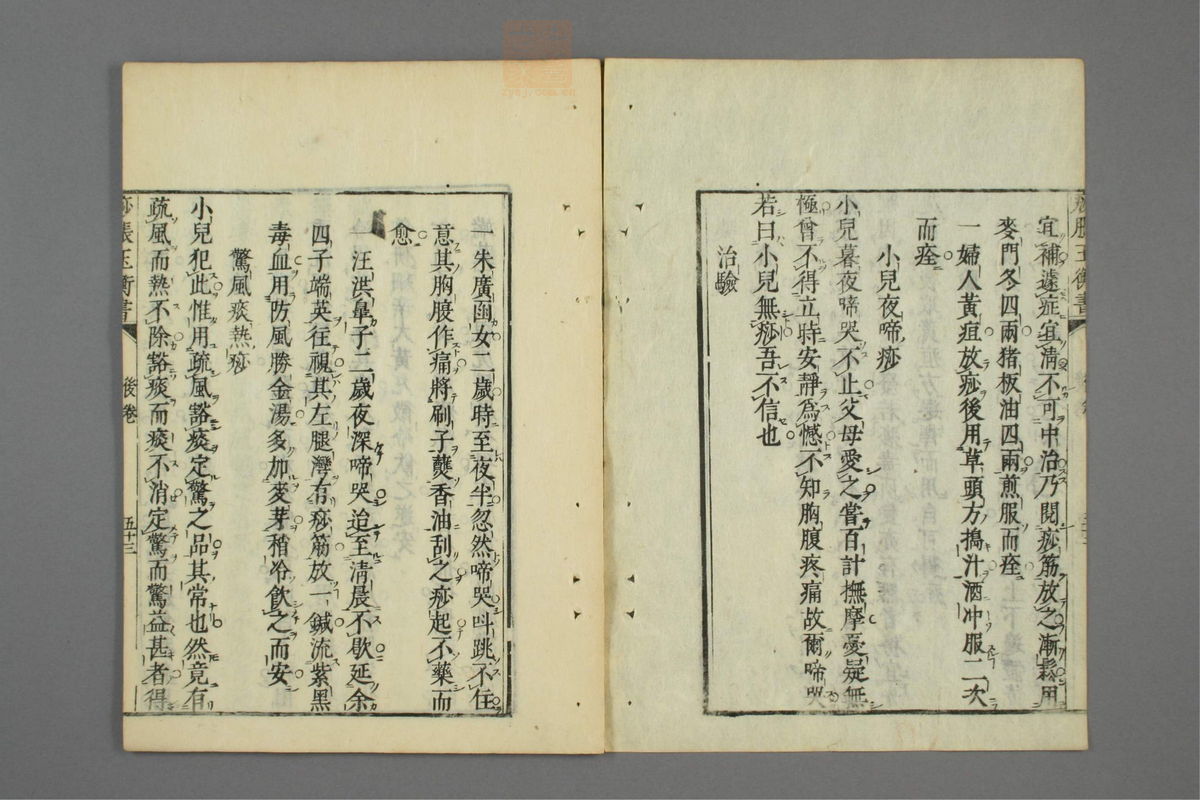 宜補遠症宜清不可中治乃閱痧筋放之漸鬆用
麥門冬四兩猪板油四兩煎服而痊
一婦人黃疸放痧後用草頭方搗汁酒冲服二次
而痊
小兒夜啼痧
小兒暮夜啼哭不止父母愛之嘗百計撫摩憂疑無
極曾不得立時安靜爲憾不知胸腹疼痛故爾啼哭
若曰小兒無痧吾不信也
治驗
一朱廣函女二歲時至夜半忽然啼哭呌跳不住
意其胸腹作痛將刷子蘸香油刮之痧起不藥而
愈
一汪洪臯子二歲夜深啼哭迨至清晨不歇延余
四子端英往視其左腿灣有痧筋放一鍼流紫黑
毒血用防風勝金湯多加麥芽稍冷飲之而安
驚風痰熱痧
小兒犯此惟用疏風豁痰定驚之品其常也然竟有
疏風而熱不除豁痰而痰不消定驚而驚益甚者得
痧脹玉衡書
後卷
五十三
zysj.com.cn